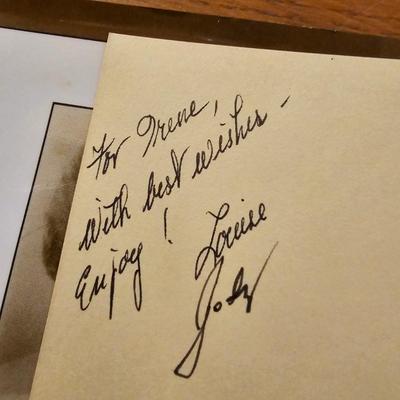 For Irene,
With best wishes -
Enjoy!
Louise
Jody